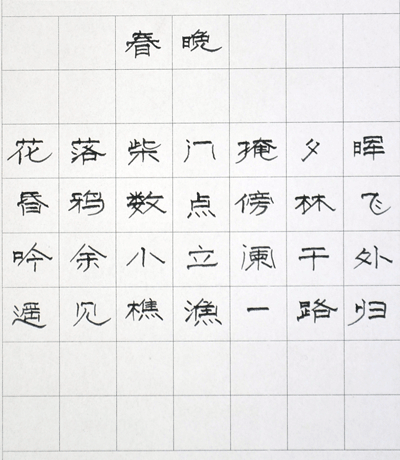 春晚
花落柴门掩夕晖
昏鸦数点傍林飞
吟余小立阑干处
遥见樵渔一路归